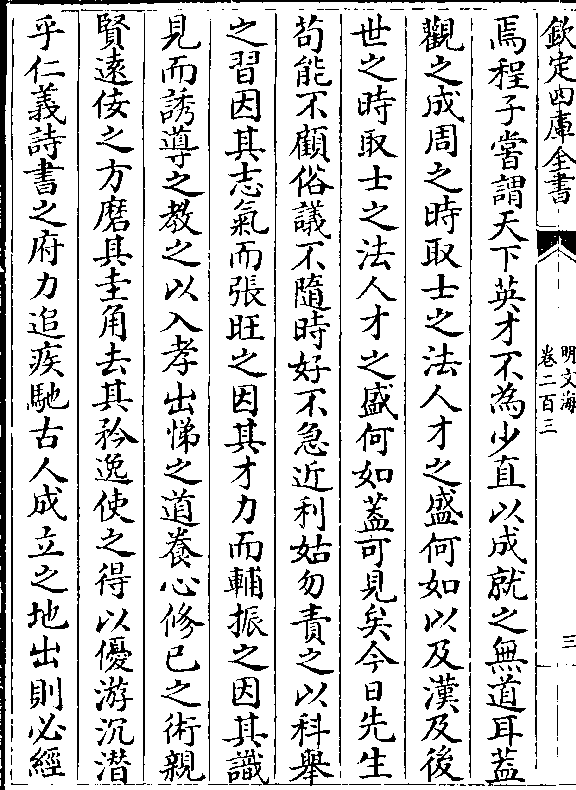 欽定四庫全書
明文海
卷二百三
三
焉程子嘗謂天下英才不為少直以成就之無道耳葢
觀之成周之時取士之法人才之盛何如以及漢及後
世之時取士之法人才之盛何如葢可見矣今日先生
苟能不顧俗議不隨時好不急近利姑勿責之以科舉
之習因其志氣而張旺之因其才力而輔振之因其識
見而誘導之教之以入孝出悌之道養心修已之術親
賢遠佞之方磨其圭角去其矜逸使之得以優游沉潛
乎仁義詩書之府力追疾馳古人成立之地出則必經